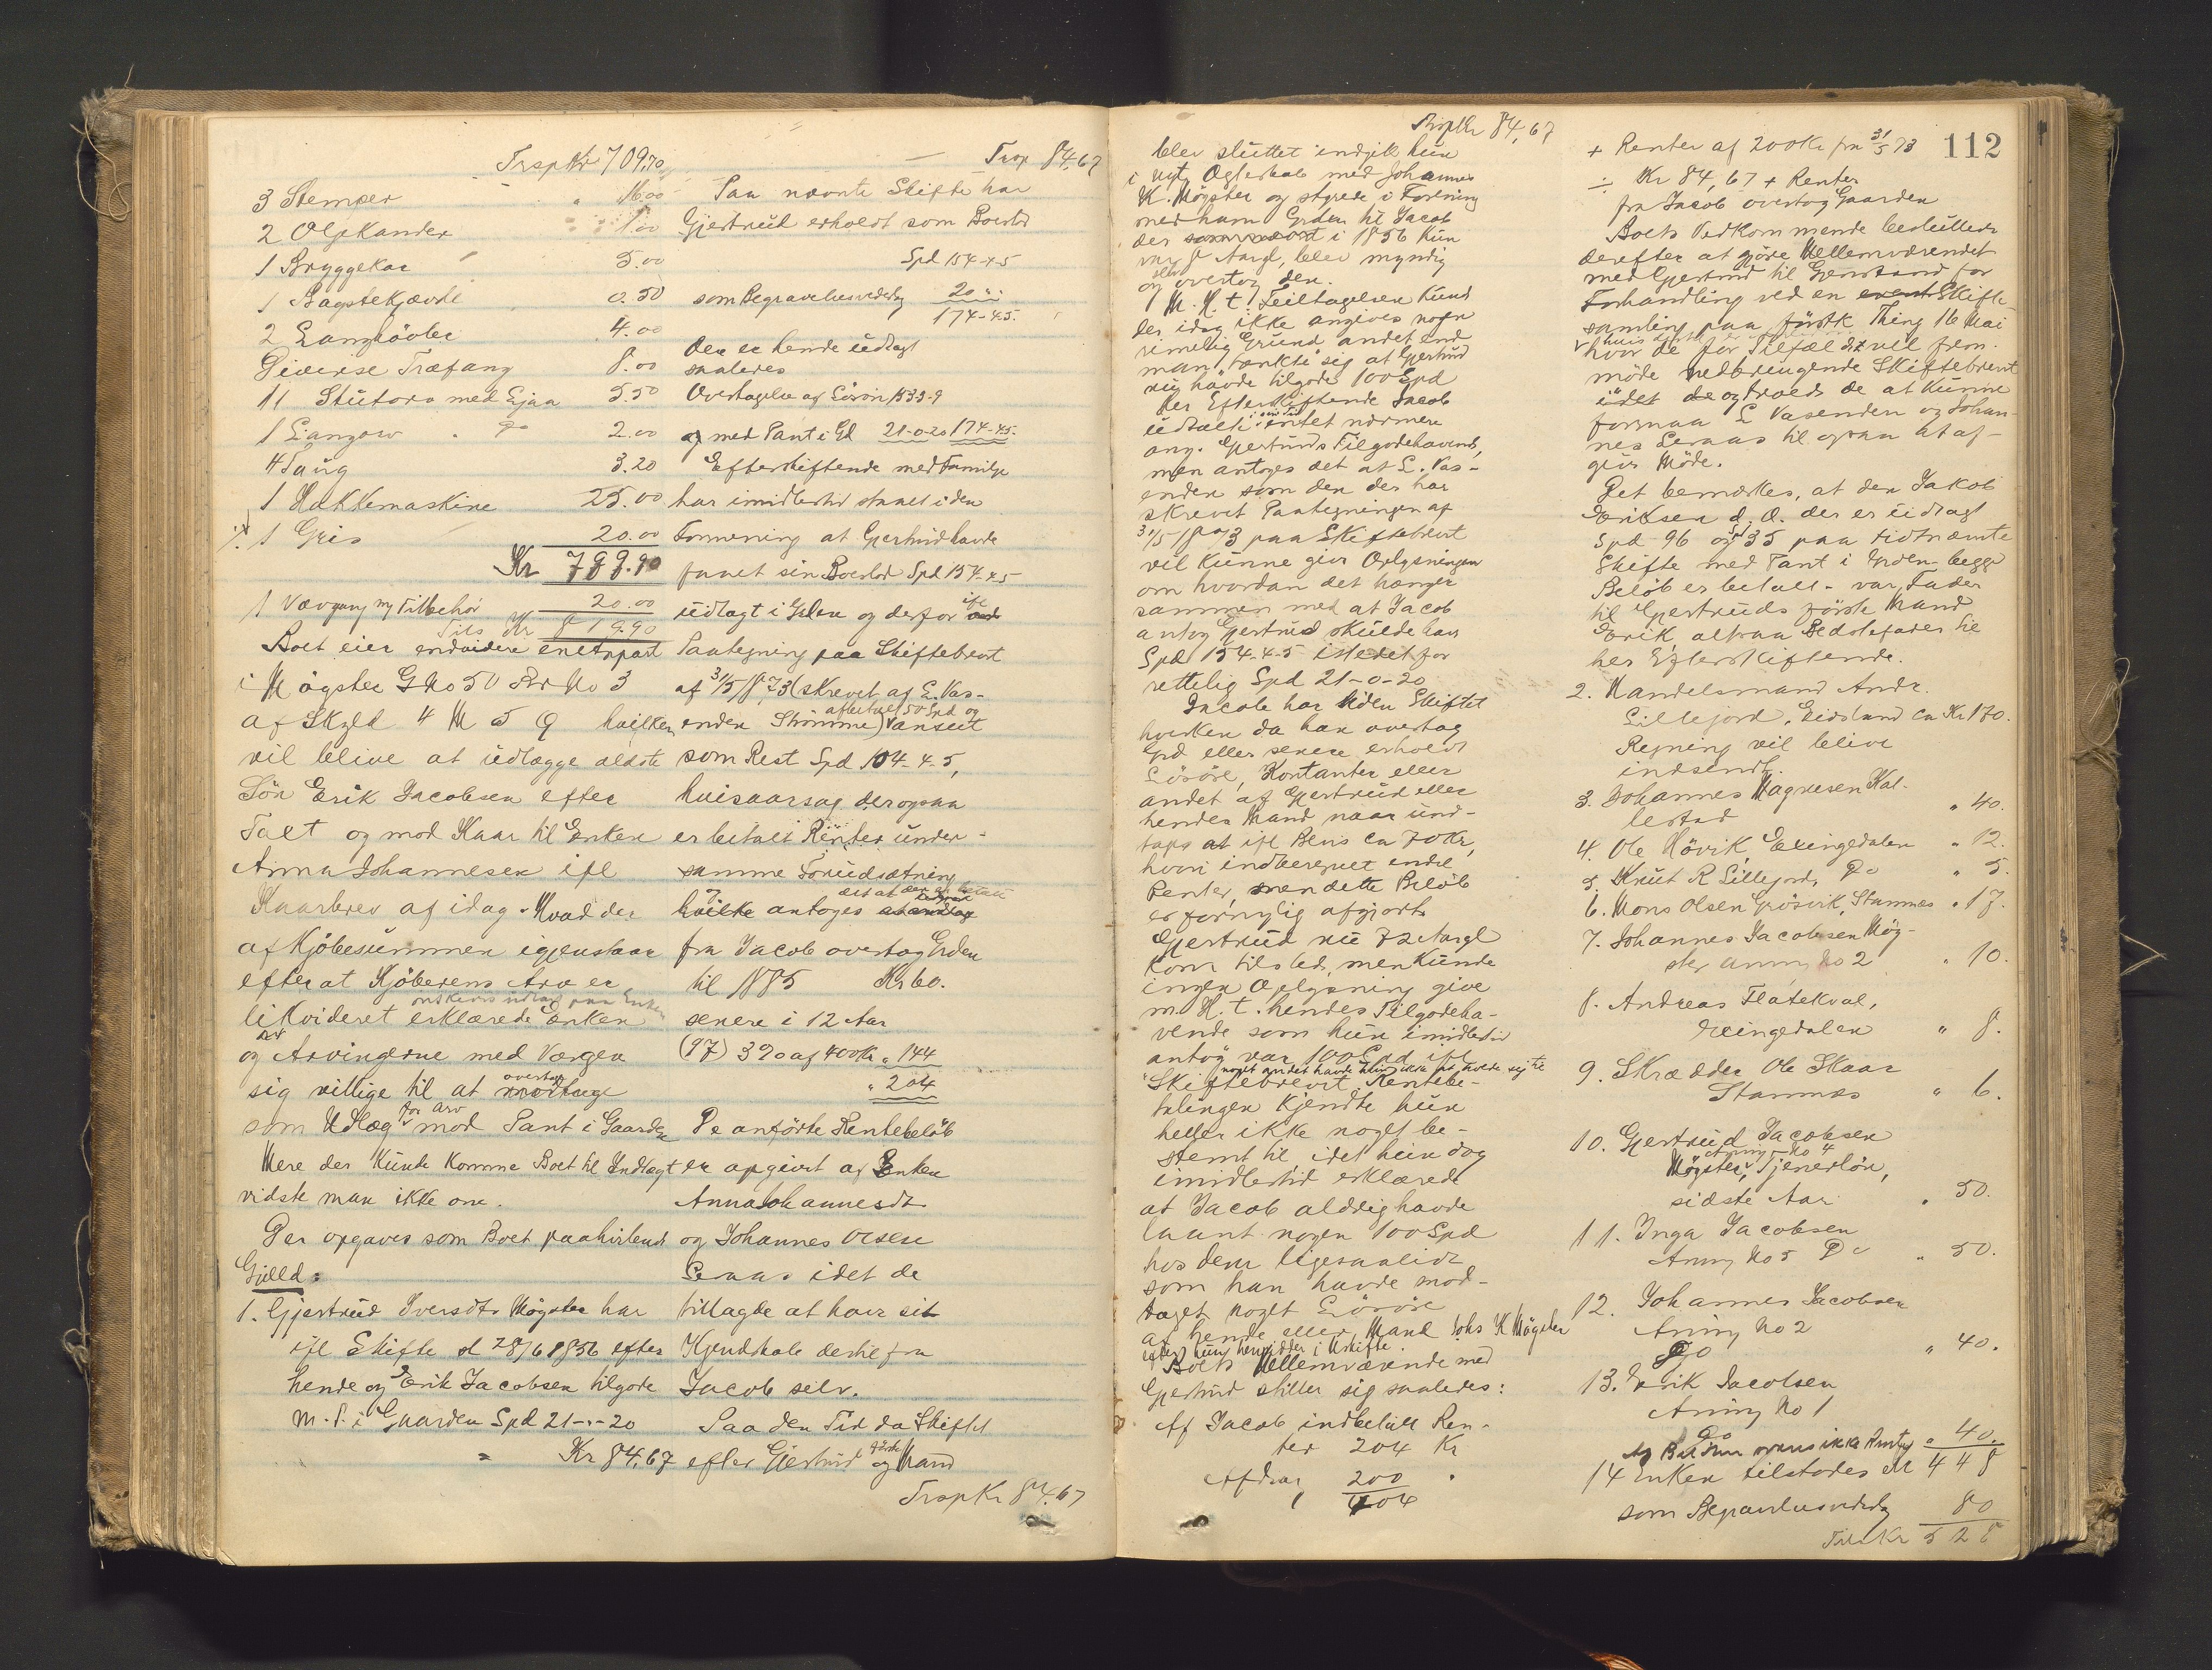 Trsp Kr 709,70
3 Stemper " 16.00
2 Oljekander 1.00
1 Bryggekar 5.00
1 Bagstekjævle 0.50
2 Langhövler 4.00
Diverse Træfang 8.00
11 Stutorv med Ljaa 5.50
1 Langorv " Do 2.00
4 Saug 3.20
1 Hakkemaskine 25.00
1 Gris 20.00
Kr 799.90
1 Vævgang m Tilbehör 20.00
Tils Kr 819.90
Boet eier endvidere en Anpart
i Mögster GNo 50 BrNo 3
af Skyld 4 M 5 Ø hvilken
vil blive at udlægge ældste
Sön Erik Jacobsen efter
Taxt og mod Kaar til Enken
Anna Johannesen ifl
Kaarbrev af idag. Hvad der
af Kjöbesummen igjenstaar
efterat Kjöberens Arv er
likvideret erklærede Enken
og Arvingerne med Værgen
sig villige til at overtage
som Udlæg for Arv mod Pant i Gaarden
Mere der kunde komme Boet til Indtægt
vidste man ikke om.
Der opgaves som Boet paahvilende
Gjæld:
1. Gjertrud Iversdtr Mögster har
ifl Skifte d 28/6 1856 efter
hende og Erik Jacobsen tilgode
m. P. i Gaarden Spd 21-"-20
= Kr 84.67
Trsp 84.67
Paa nævnte Skifte har
Gjertrud erholdt som Boeslod
Spd 154-4-5
som Begravelsesvederlag 20 " "
174-4-5.
Der er hende udlagt
saaledes
Overtagelse af Lösöre 153-3-9
og med Pant i Gd 21-0-20 174-4-5.
Efterskiftende med Familje
har imidlertid staaet i den
Formening at Gjertrud havde
faaet sin Boeslod Spd 154-4-5
udlagt i Gden og derfor ifl
Paategning paa Skiftebrevet
af 31/5 1873 (skrevet af L. Vas-
enden Strömme) afbetalt 50 Spd og Vanseet
som Rest Spd 104-4-5,
hvisaarsag der ogsaa
er betalt Renter under
samme Forudsætning
hvilke antoges
fra Jacob overtog Gden
til 1885 Kr 60.
senere i 12 Aar
(97) 3% af 400 Kr " 144
" 204
De anförte Rentebelöb
er opgivet af Enken
Anna Johannesdt
og Johannes Olsen
Leraas idet de
tillagde at have sit
Kjendskab dertil fra
Jacob selv.
Paa den Tid da Skiftet
efter Gjertrud og förste Mand
Trsp Kr 84.67
Trsp Kr 84,67
blev sluttet indgik hun
i nyt Ægteskab med Johannes
K. Mögster og styrede i Forening
med ham Gården til Jacob
der i 1856 kun
var 8 Aargl, blev myndig
og overtog den.
M. H. t. Feiltagelsen kund
der idag ikke angives nogen
rimelig Grund andet end
man tænkte sig at Gjertrud
nu havde tilgode 100 Spd
Her Efterskiftende Jacob
udtalte intet nærmere
ang. Gjertruds Tilgodehavende,
men antoges det at L. Vas-
enden som den der har
skrevet Paategningen af
31/5 1873 paa Skiftebrevet
vil kunne give Oplysningen
om hvordan det hænger
sammen med at Jacob
antog Gjertrud skulde have
Spd 154-4-5 istedetfor
rettelig Spd 21-0-20
Jacob har uden Skiftet
hverken da han overtog
Gd eller senere erholdt
Lösöre, Kontanter eller
andet af Gjertrud eller
hendes Mand naar und-
tages at ifl Bevis ca 70 Kr,
hvori indberegnet endel
Renter, men dette Belöb
er fornylig afgjort.
Gjertrud nu 72 Aargl
kom tilstede, men kunde
ingen Oplysning give
m. H. t. hendes Tilgodeha-
vende som hun imidlertid
antog var 100 Spd ifl
Skiftebrevet. Rentebe-
talingen kjendte hun
heller ikke noget be-
stemt til idet hun dog
imidlertid erklærede
at Jacob aldrig havde
laant nogen 100 Spd
hos dem ligesaalidt
som han havde mod-
taget noget Lösöre
af hende eller Mand Johs K Mögster
Boets Mellemværende med
Gjertrud stiller sig saaledes:
Af Jacob indbetalt Ren-
ter 204 Kr
Afdrag 200 "
404
112
+ Renter af 200 Kr fra 31/5 73
÷ Kr 84,67 + Renter
fra Jacob overtog Gaarden
Boets Vedkommende besluttede
derefter at gjöre Mellemværendet
med Gjertrud til Gjenstand for
Forhandling ved en event Skifte
samling paa förstk. Thing 16 Mai
hvor de for Tilfældet vil frem-
möde medbringende Skiftebrevet
idet de og troede de at kunne
formaa L Vasenden og Johan-
nes Leraas til ogsaa at af-
give Möde.
Det bemærkes, at den Jakob
Eriksen d. Æ. der er udlagt
Spd 96 og Spd 35 paa sidtnævnte
Skifte med Pant i Gården begge
Belöb er betalt - var Fader
til Gjertruds förste Mand
Erik, altsaa Bedstefader til
her Efterskiftende.
2. Handelsmand Andr.
Lillejord, Eidsland ca Kr 170.
Regning vil blive
indsendt.
3. Johannes Magnesen Kal-
lestad " 40.
4. Ole Hövik Exingedalen " 12.
5. Knut R Lillejord, Do " 5.
6. Mons Olsen Grösvik, Stamnes " 17.
7. Johannes Jacobsen Mög-
ster Arving No 2 " 10.
8. Andreas Flatekval,
Exingedalen " 8.
9. Skrædder Ole Skaar
Stamnes " 6.
10. Gjertrud Jacobsen
Arving No 4
Mögster, Tjenerlön,
sidste Aar " 50.
11. Inga Jacobsen
Arving No 5 Do " 50.
12. Johannes Jacobsen
Arving No 2
Do " 40.
13. Erik Jacobsen
Arving No 1
Do " 40.
448
14 Enken tilstodes
som Begravelsesvederlag 80
Tils Kr 528